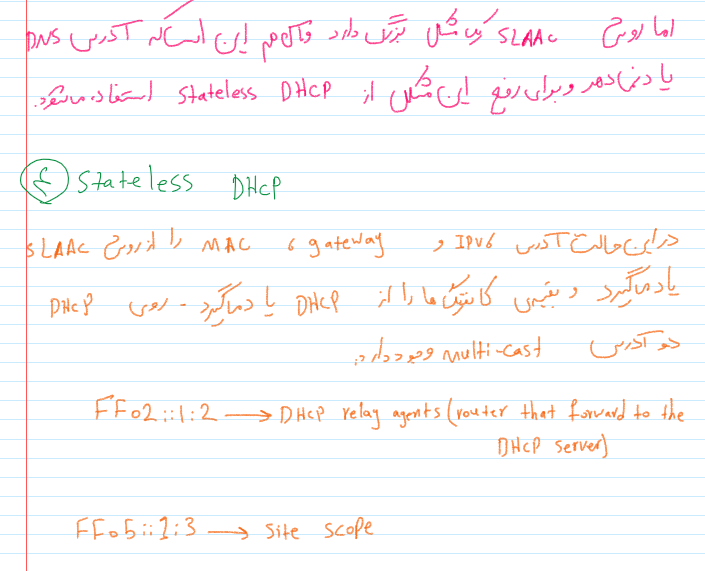 اما روش SLAAC یک مشکل بزرگ دارد و آن هم این است که آدرس DNS
یاد نمی دهد و برای رفع این مشکل از Stateless DHCP استفاده می شود.
۴ Stateless DHCP
در این حالت آدرس IPv6 و gateway ، MAC را از روش SLAAC
یاد می گیرد و بقیه ی کانفیگ ها را از DHCP یاد می گیرد - روی DHCP
دو آدرس multi-cast وجود دارد.
FF02::1:2 → DHCP relay agents (router that forward to the
DHCP server)
FF05::1:3 → Site scope